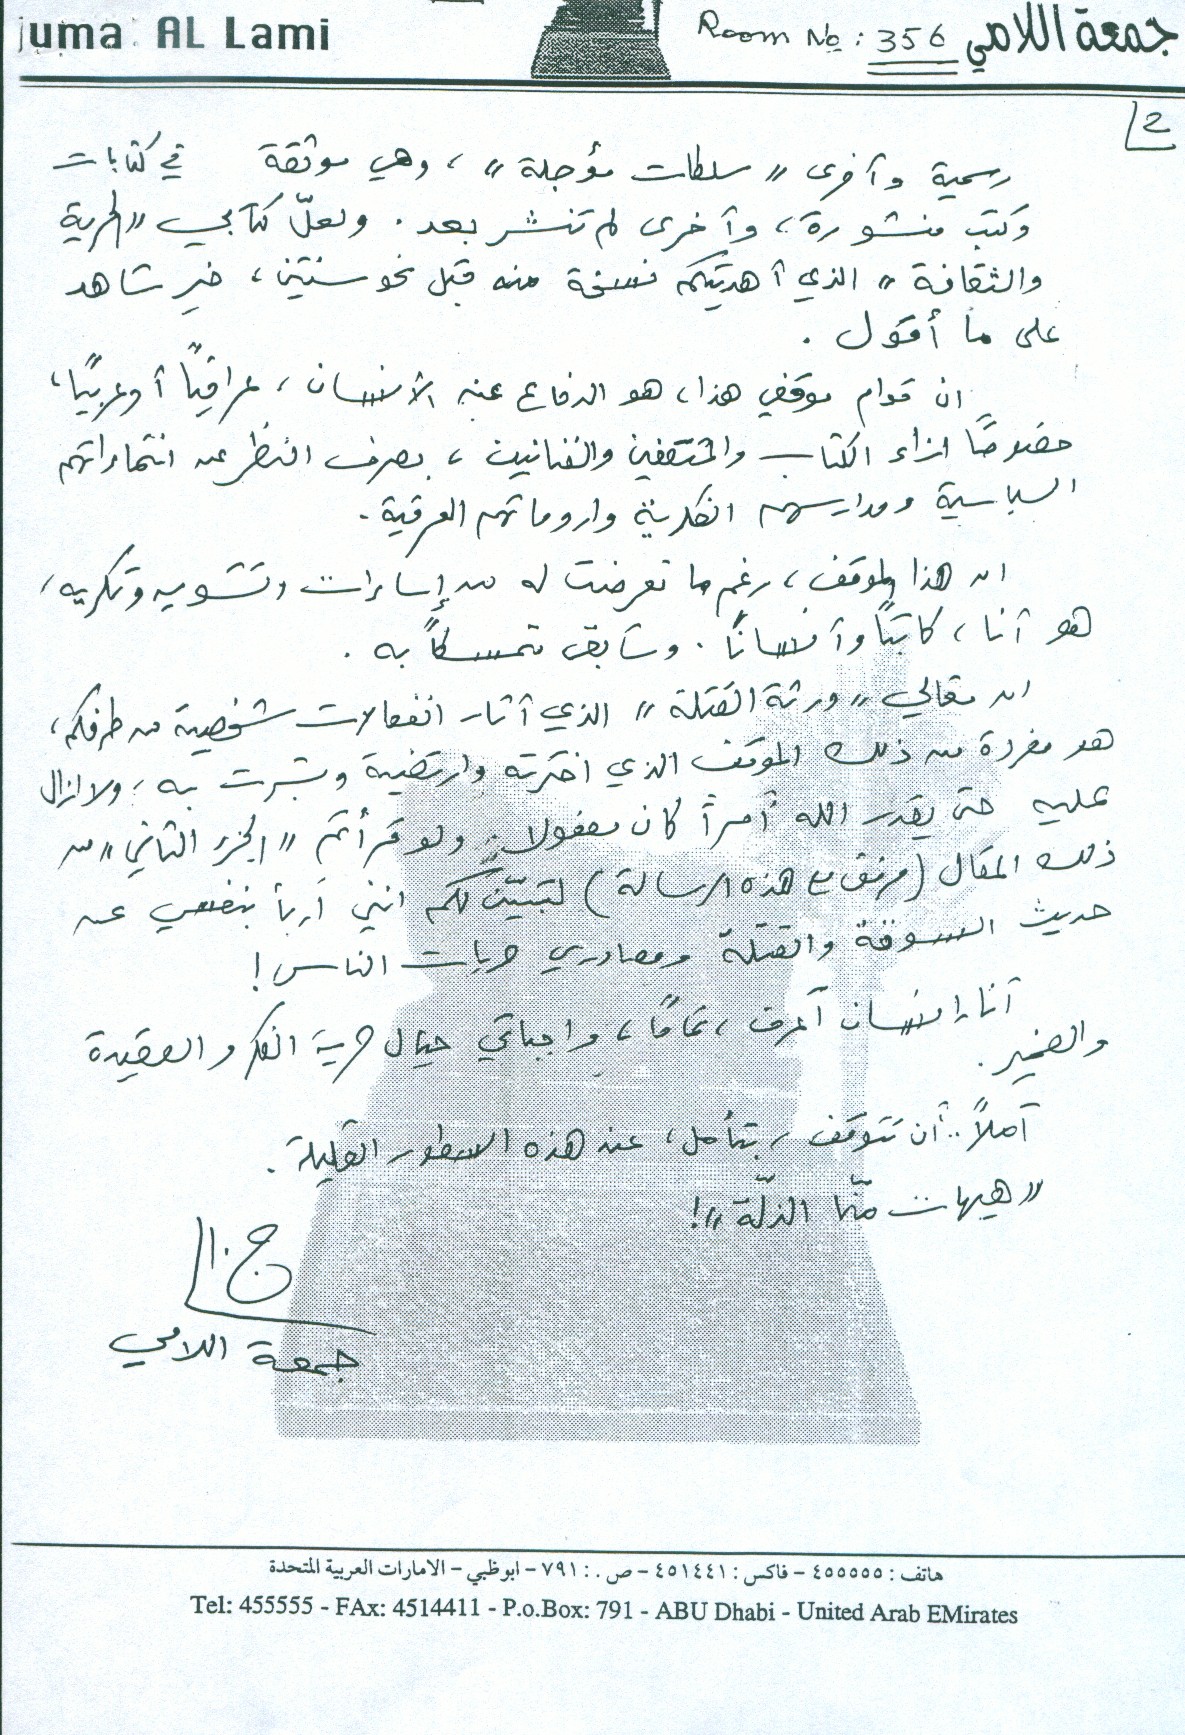 juma AL Lami
Room No: 356
جمعة اللامي
2
رسمية وأخرى «سلطات مؤجلة»، وهي موثقة في كتابات
وكتب منشورة، وأخرى لم تنشر بعد. ولعلّ كتابي «الحرية
والثقافة» الذي أهديتكم نسخة منه قبل نحو سنتين، خير شاهد
على ما أقول.
ان قوام موقفي هذا، هو الدفاع عن الأنسان، عراقياً أو عربيًا،
خصوصًا ازاء الكتاب والمثقفين والفنانين، بصرف النظر عن انتماءاتهم
السياسية ومدارسهم الفكرية واروماتهم العرقية.
ان هذا الموقف، رغم ما تعرضت له من إساءات وتشويه وتكريه،
هو أنا، كاتبًا وأنسانًا. وسأبقى متمسكاً به.
ان مقالي «ورثة القتلة» الذي أثار انفعالات شخصية من طرفكم،
هو مفردة من ذلك الموقف الذي اخترته وارتضيته وبشرت به، ولا ازال
عليه حتى يقدر الله أمراً كان مفعولا. ولو قرأتم «الجزء الثاني» من
ذلك المقال (مرفق مع هذه الرسالة) لتبيّن لكم انني أربأ بنفسي عن
حديث السوقة والقتلة ومصادري حريات الناس!
أنا انسان أعرف، تمامًا، واجباتي حيال حرية الفكر والعقيدة
والضمير.
آملاً.. أن تتوقف، بتأمل، عند هذه السطور القليلة.
«هيهات منّا الذلّة»!
ج. ال
جمعة اللامي
هاتف : ٤٥٥٥٥٥ - فاكس : ٤٥١٤٤١ - ص . : ٧٩١ - ابوظبي - الامارات العربية المتحدة
Tel: 455555 - FAx: 4514411 - P.o.Box: 791 - ABU Dhabi - United Arab EMirates